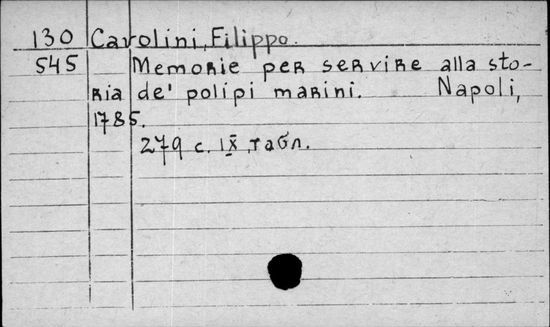 130 Cavolini, Filippo.
545 Memorie per servire alla sto-
ria de' polipi marini. Napoli,
1785.
279 с. IX табл.